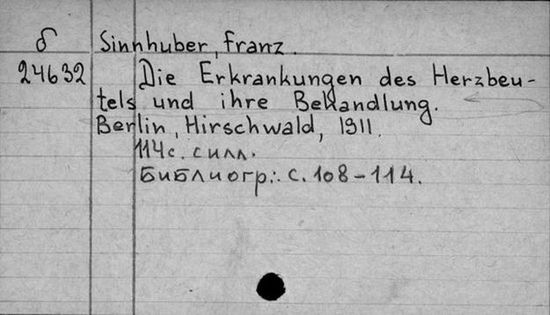 б Sinnhuber, Franz.
24632 Die Erkrankungen des Herzbeu-
tels und ihre Behandlung.
Berlin, Hirschwald, 1911.
114с. силл.
Библиогр.: с. 108-114.